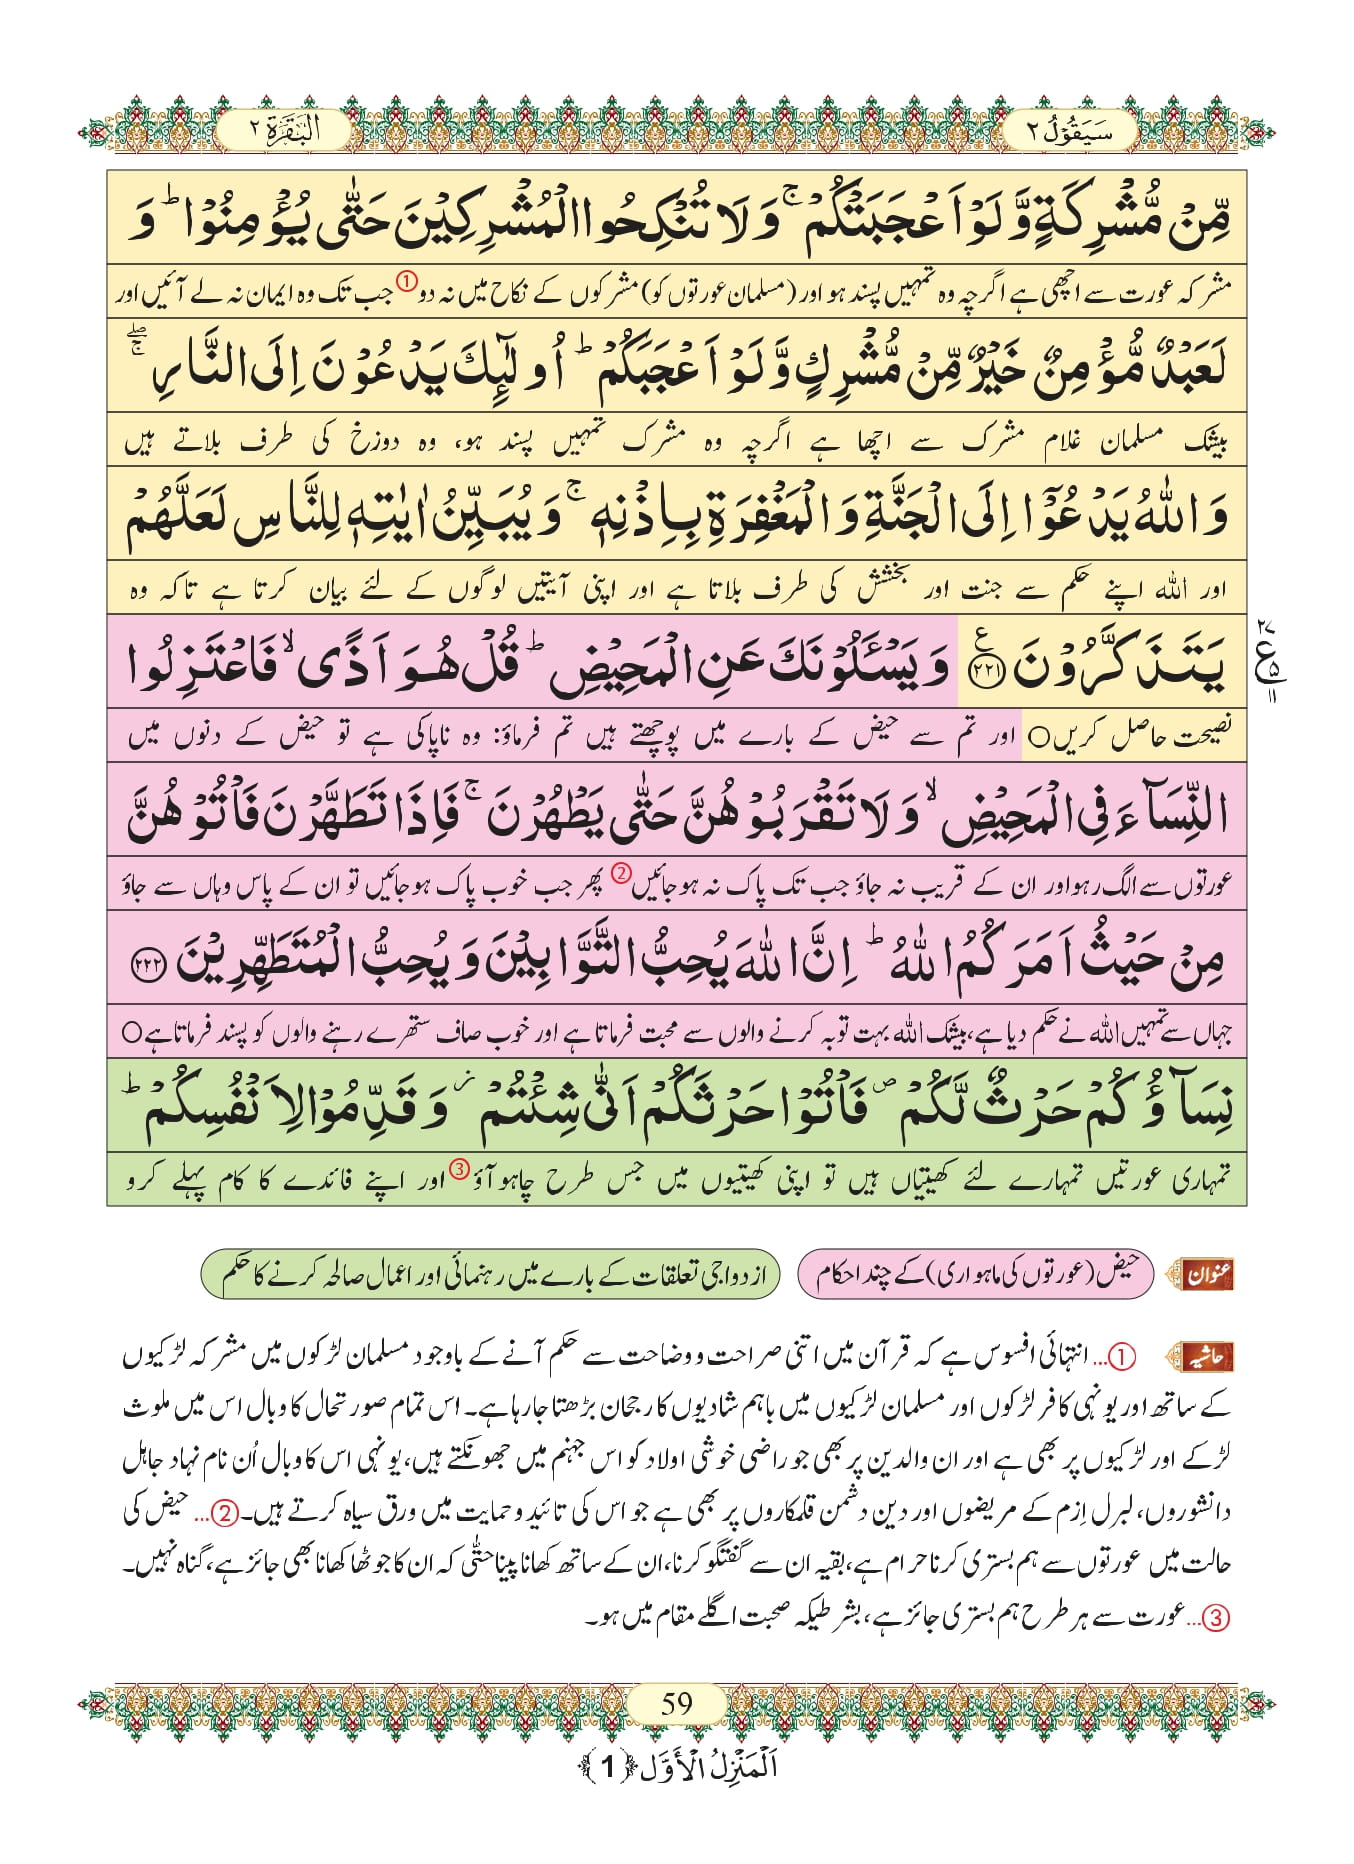 سَیَقُوْلُ ٢
البَقَرَة ٢
مِّنْ مُّشْرِكَةٍ وَّ لَوْ اَعْجَبَتْكُمْ ۚ وَ لَا تُنْكِحُوا الْمُشْرِكِیْنَ حَتّٰى یُؤْمِنُوْا ؕ وَ
مشرکہ عورت سے اچھی ہے اگرچہ وہ تمہیں پسند ہو اور (مسلمان عورتوں کو) مشرکوں کے نکاح میں نہ دو① جب تک وہ ایمان نہ لے آئیں اور
لَعَبْدٌ مُّؤْمِنٌ خَیْرٌ مِّنْ مُّشْرِكٍ وَّ لَوْ اَعْجَبَكُمْ ؕ اُولٰٓىٕكَ یَدْعُوْنَ اِلَى النَّارِ ۖۚ
بیشک مسلمان غلام مشرک سے اچھا ہے اگرچہ وہ مشرک تمہیں پسند ہو، وہ دوزخ کی طرف بلاتے ہیں
وَ اللّٰهُ یَدْعُوْۤا اِلَى الْجَنَّةِ وَ الْمَغْفِرَةِ بِاِذْنِهٖ ۚ وَ یُبَیِّنُ اٰیٰتِهٖ لِلنَّاسِ لَعَلَّهُمْ
اور اللہ اپنے حکم سے جنت اور بخشش کی طرف بلاتا ہے اور اپنی آیتیں لوگوں کے لئے بیان کرتا ہے تاکہ وہ
یَتَذَكَّرُوْنَ ﴿٢٢١﴾ ع وَ یَسْــٴَـلُوْنَكَ عَنِ الْمَحِیْضِ ؕ قُلْ هُوَ اَذًى ۙ فَاعْتَزِلُوا
٢٧ ع ٥ ١١
نصیحت حاصل کریں○ اور تم سے حیض کے بارے میں پوچھتے ہیں تم فرماؤ: وہ ناپاکی ہے تو حیض کے دنوں میں
النِّسَآءَ فِی الْمَحِیْضِ ۙ وَ لَا تَقْرَبُوْهُنَّ حَتّٰى یَطْهُرْنَ ۚ فَاِذَا تَطَهَّرْنَ فَاْتُوْهُنَّ
عورتوں سے الگ رہو اور ان کے قریب نہ جاؤ جب تک پاک نہ ہوجائیں② پھر جب خوب پاک ہوجائیں تو ان کے پاس وہاں سے جاؤ
مِنْ حَیْثُ اَمَرَكُمُ اللّٰهُ ؕ اِنَّ اللّٰهَ یُحِبُّ التَّوَّابِیْنَ وَ یُحِبُّ الْمُتَطَهِّرِیْنَ ﴿٢٢٢﴾
جہاں سے تمہیں اللہ نے حکم دیا ہے، بیشک اللہ بہت توبہ کرنے والوں سے محبت فرماتا ہے اور خوب صاف ستھرے رہنے والوں کو پسند فرماتا ہے○
نِسَآؤُكُمْ حَرْثٌ لَّكُمْ ۪ فَاْتُوْا حَرْثَكُمْ اَنّٰى شِئْتُمْ ؗ وَ قَدِّمُوْا لِاَنْفُسِكُمْ ؕ
تمہاری عورتیں تمہارے لئے کھیتیاں ہیں تو اپنی کھیتیوں میں جس طرح چاہو آؤ③ اور اپنے فائدے کا کام پہلے کرو
عنوان حیض (عورتوں کی ماہواری) کے چند احکام ازدواجی تعلقات کے بارے میں رہنمائی اور اعمال صالحہ کرنے کا حکم
حاشیہ ①... انتہائی افسوس ہے کہ قرآن میں اتنی صراحت و وضاحت سے حکم آنے کے باوجود مسلمان لڑکوں میں مشرکہ لڑکیوں
کے ساتھ اور یونہی کافر لڑکوں اور مسلمان لڑکیوں میں باہم شادیوں کا رجحان بڑھتا جارہا ہے۔ اس تمام صورتحال کا وبال اس میں ملوث
لڑکے اور لڑکیوں پر بھی ہے اور ان والدین پر بھی جو راضی خوشی اولاد کو اس جہنم میں جھونکتے ہیں، یونہی اس کا وبال اُن نام نہاد جاہل
دانشوروں، لبرل اِزم کے مریضوں اور دین دشمن قلمکاروں پر بھی ہے جو اس کی تائید و حمایت میں ورق سیاہ کرتے ہیں۔②... حیض کی
حالت میں عورتوں سے ہم بستری کرنا حرام ہے، بقیہ ان سے گفتگو کرنا، ان کے ساتھ کھانا پینا حتّٰی کہ ان کا جوٹھا کھانا بھی جائز ہے، گناہ نہیں۔
③... عورت سے ہر طرح ہم بستری جائز ہے، بشرطیکہ صحبت اگلے مقام میں ہو۔
59
اَلْمَنْزِلُ الْأَوَّل ﴿1﴾